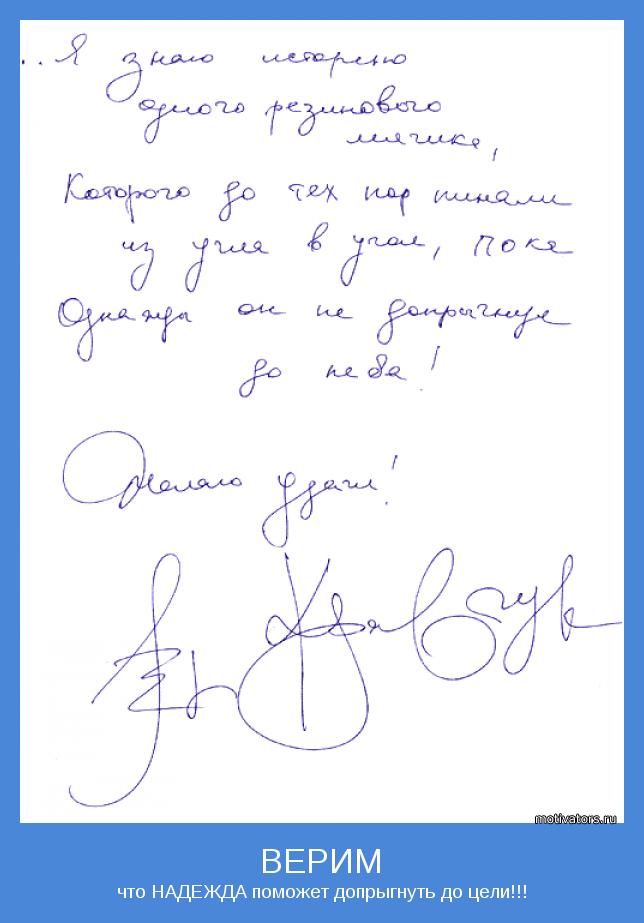 ..Я знаю историю
одного резинового
мячика,
Которого до тех пор пинали
из угла в угол, пока
Однажды он не допрыгнул
до неба!
Желаю удачи!
Кравчук
motivators.ru
ВЕРИМ
что НАДЕЖДА поможет допрыгнуть до цели!!!